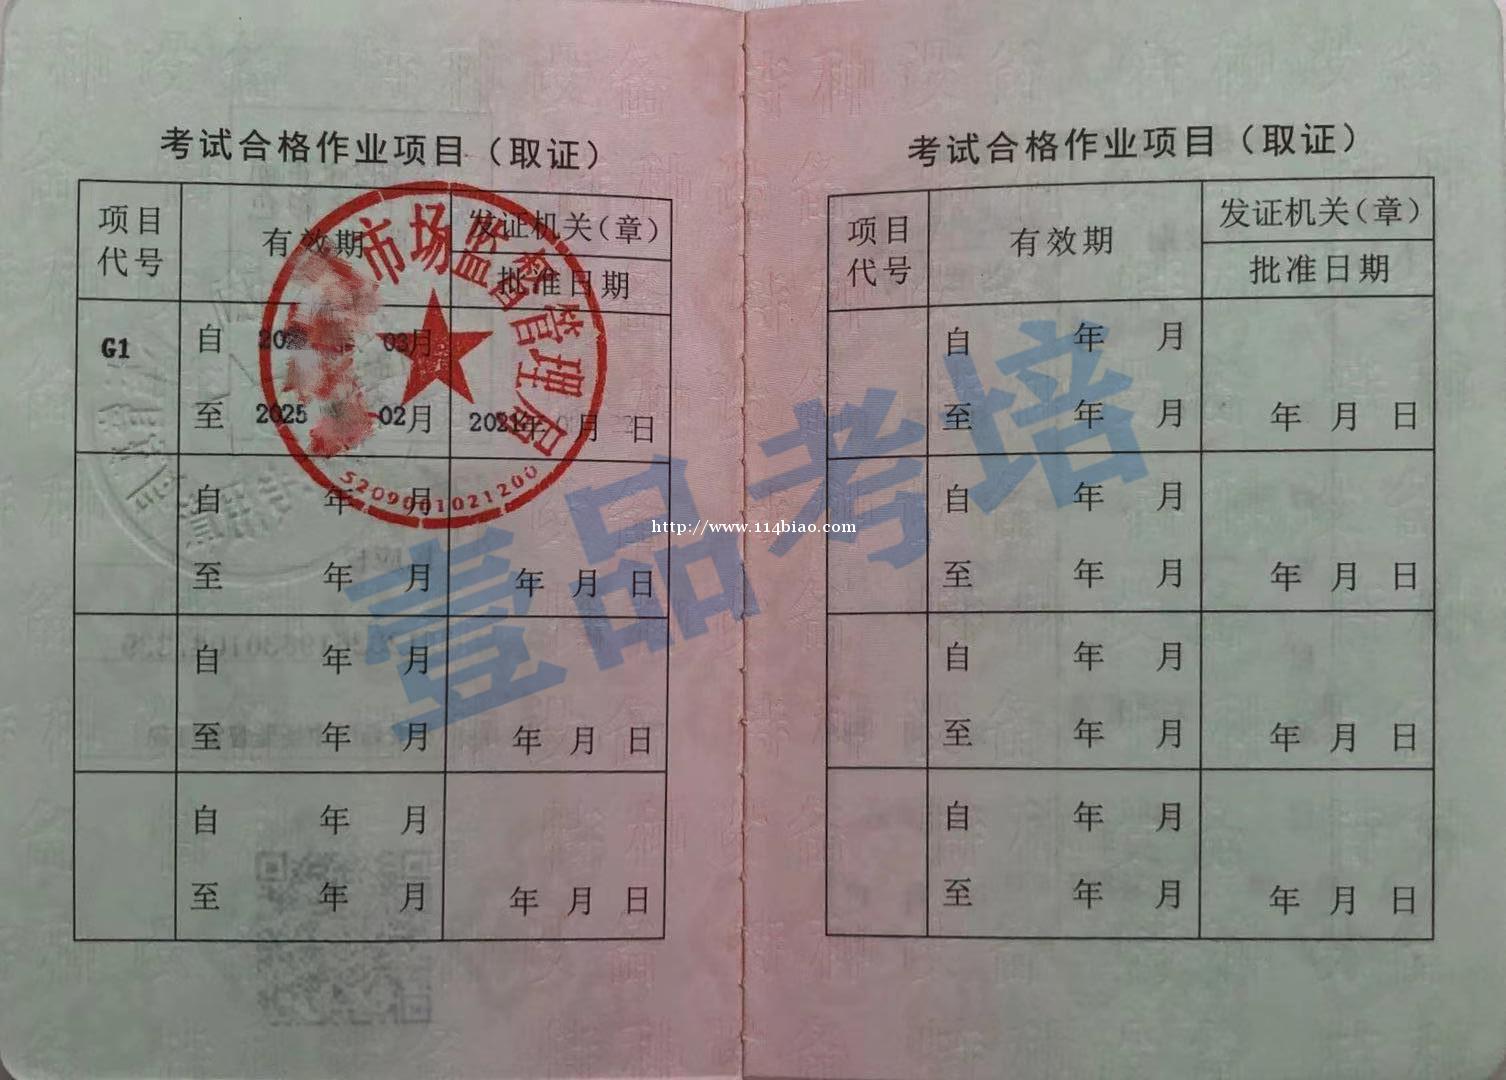 考试合格作业项目（取证）
项目代号 有效期 发证机关（章）
批准日期
G1 自 03月
至 2025 02月 2021年 月 日
自 年 月
至 年 月 年 月 日
自 年 月
至 年 月 年 月 日
自 年 月
至 年 月 年 月 日
市场监督管理局
5209001021200
考试合格作业项目（取证）
项目代号 有效期 发证机关（章）
批准日期
自 年 月
至 年 月 年 月 日
自 年 月
至 年 月 年 月 日
自 年 月
至 年 月 年 月 日
自 年 月
至 年 月 年 月 日
壹品考培
http://www.114biao.com